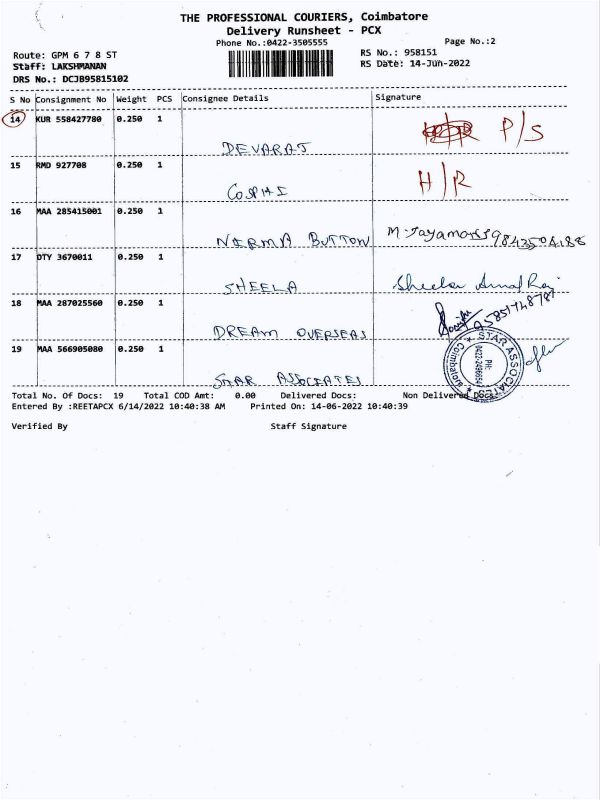 THE PROFESSIONAL COURIERS, Coimbatore
Delivery Runsheet - PCX
Phone No.:0422-3505555
Page No.:2
Route: GPM 6 7 8 ST
RS No.: 958151
Staff: LAKSHMANAN
RS Date: 14-Jun-2022
DRS No.: DCJB95815102
S No Consignment No Weight PCS Consignee Details Signature
14 KUR 558427780 0.250 1
DEVARAJ P/S
15 RMD 927708 0.250 1
H/R
16 MAA 285415001 0.250 1
NIRMA BUTTON
17 DTY 3670011 0.250 1
SHEELA
18 MAA 287025560 0.250 1
DREAM OVERSEAS
19 MAA 566905080 0.250 1
STAR ASSOCIATES
STAR ASSOCIATES
Coimbatore
PH:
Total No. Of Docs: 19 Total COD Amt: 0.00 Delivered Docs: Non Delivered Docs:
Entered By :REETAPCX 6/14/2022 10:40:38 AM Printed On: 14-06-2022 10:40:39
Verified By Staff Signature